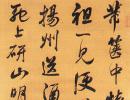 篋中
祖一見便
揚州送酒
上研山明